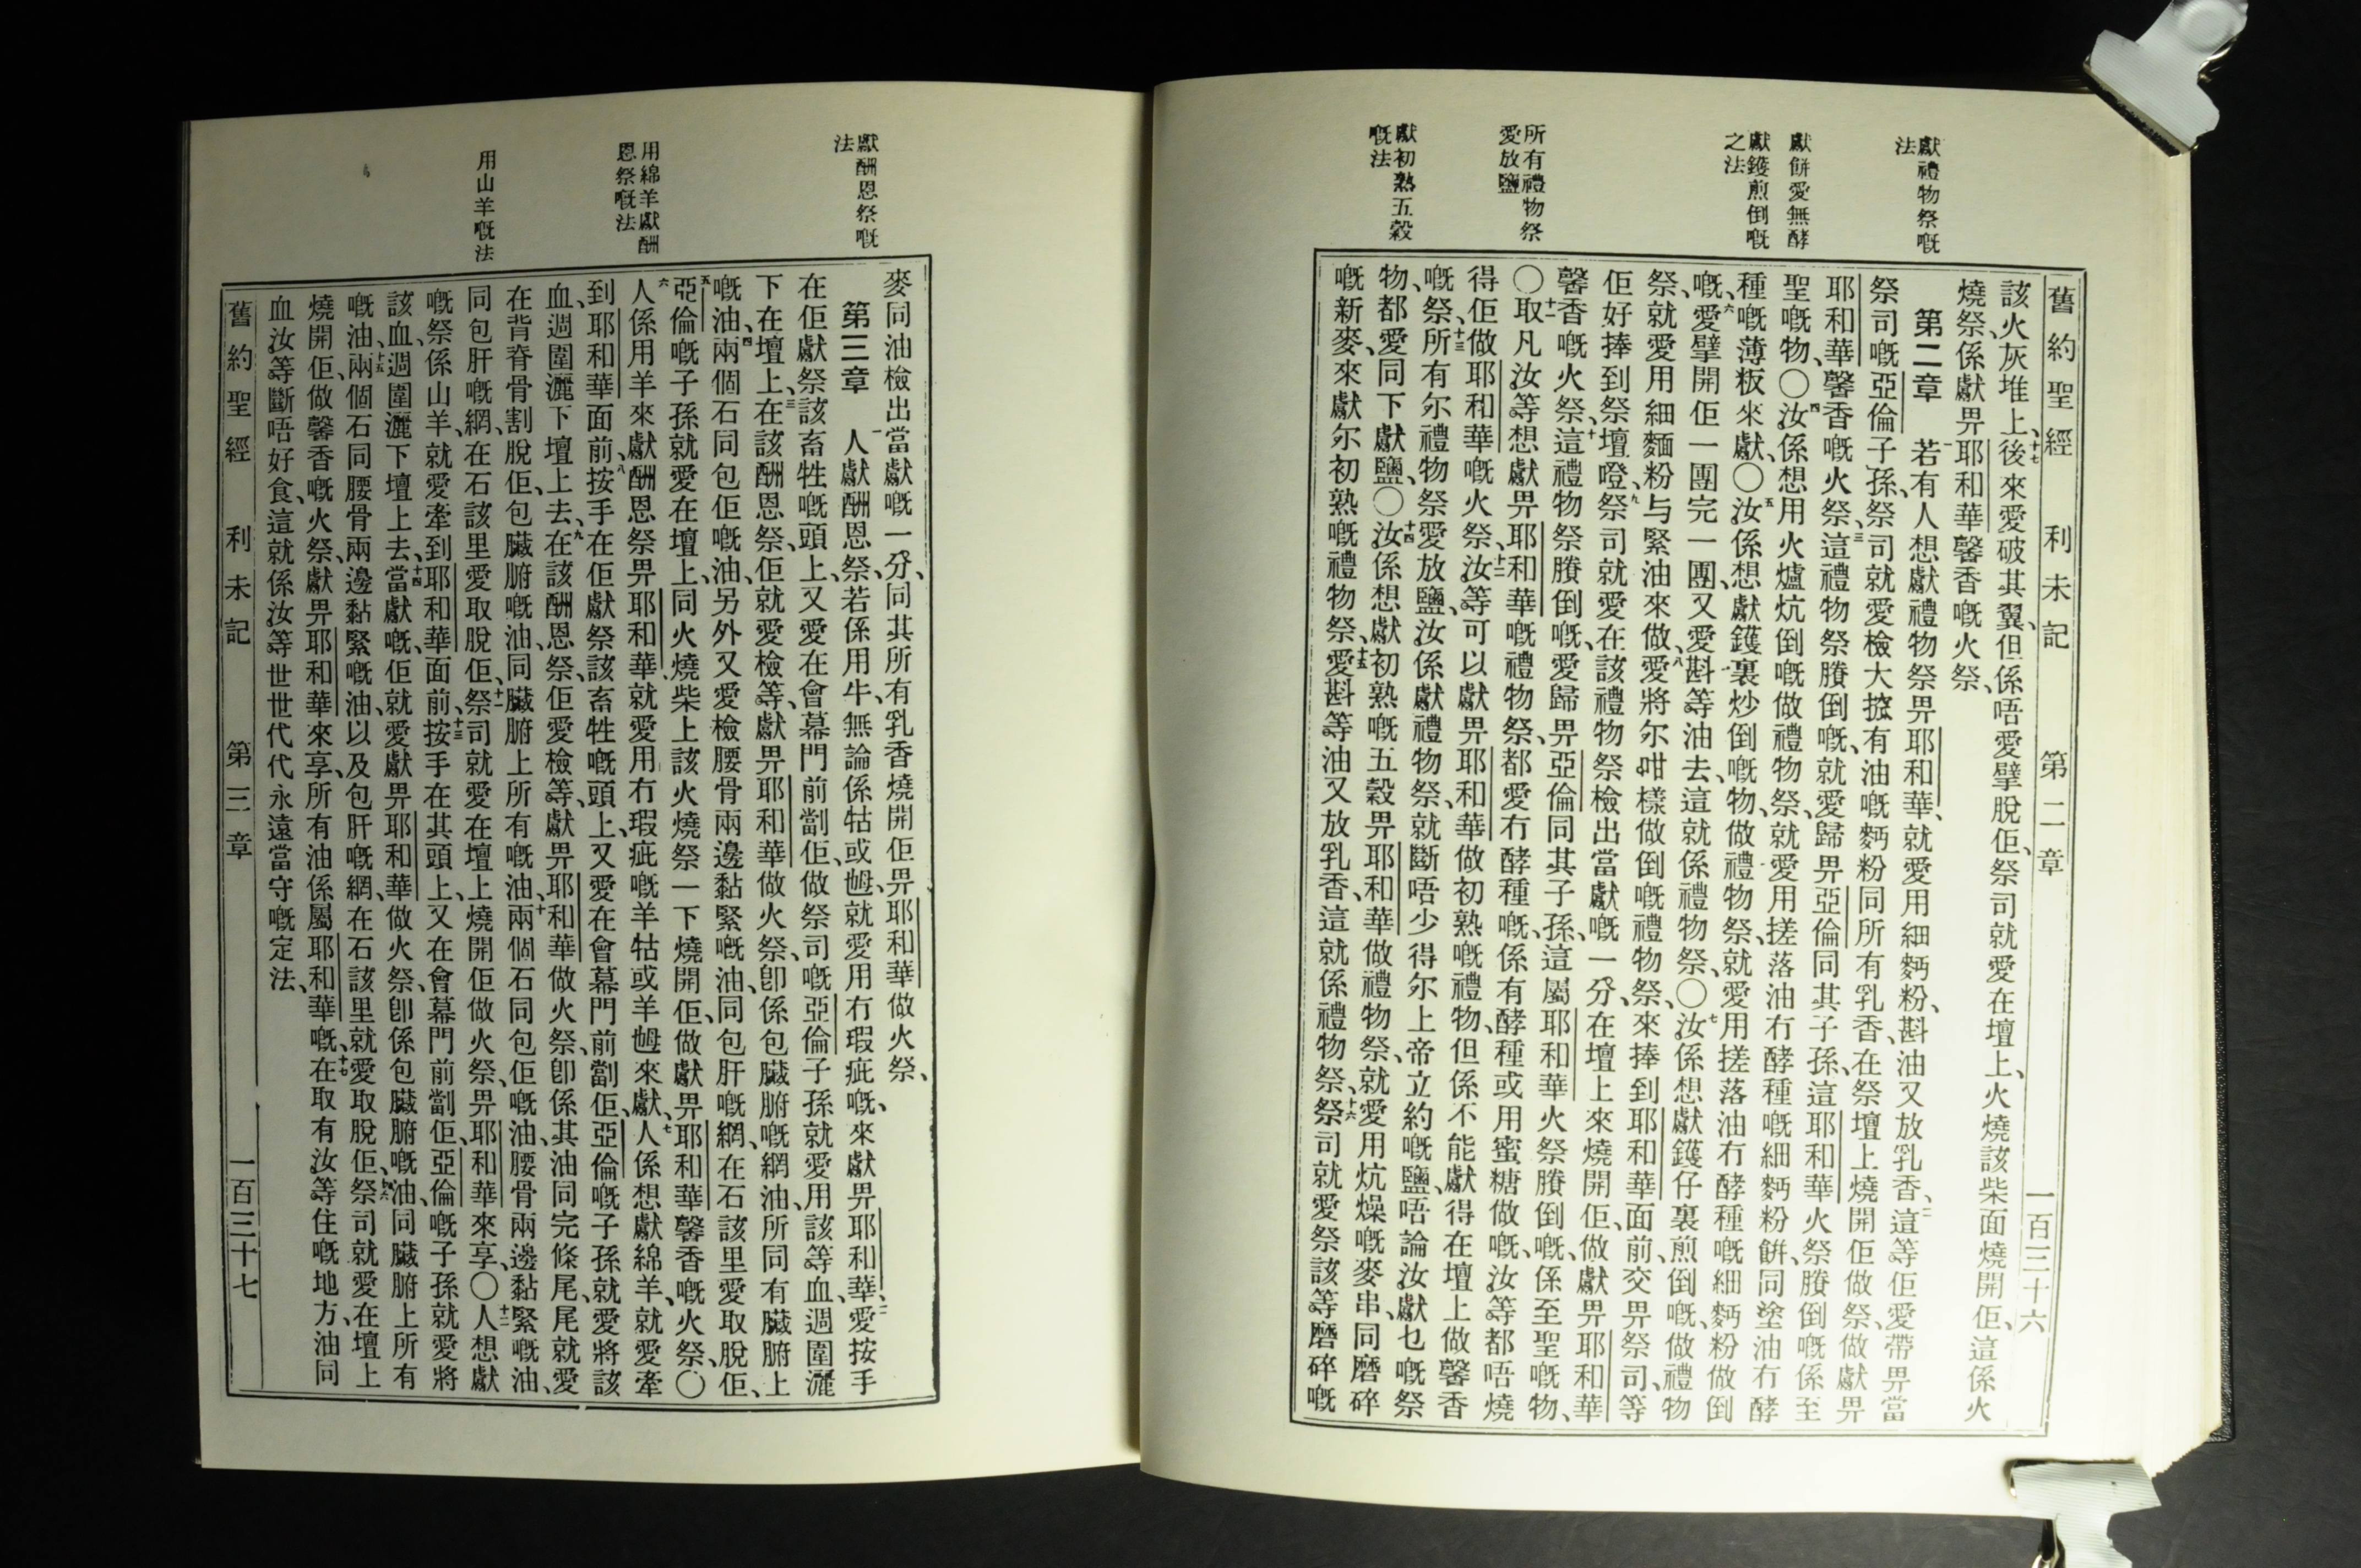 舊約聖經 利未記 第二章 一百三十六
獻禮物祭嘅
法
獻餅愛無酵
獻鑊煎倒嘅
之法
所有禮物祭
愛放鹽
獻初熟五穀
嘅法
該火灰堆上、十七後來愛破其翼、但係唔愛擘脫佢、祭司就愛在壇上、火燒該柴面燒開佢、這係火
燒祭、係獻畀耶和華馨香嘅火祭、
第二章 一若有人想獻禮物祭畀耶和華、就愛用細麪粉、斟油又放乳香、二這等佢愛帶畀當
祭司嘅亞倫子孫、祭司就愛檢大㧯有油嘅麪粉同所有乳香、在祭壇上燒開佢做祭、做獻畀
耶和華馨香嘅火祭、三這禮物祭賸倒嘅、就愛歸畀亞倫同其子孫、這耶和華火祭賸倒嘅係至
聖嘅物、〇四汝係想用火爐炕倒嘅做禮物祭、就愛用搓落油冇酵種嘅細麪粉餅、同塗油冇酵
種嘅薄粄來獻、〇五汝係想獻鑊裏炒倒嘅物、做禮物祭、就愛用搓落油冇酵種嘅細麪粉做倒
嘅、六愛擘開佢一團完一團、又愛斟等油去、這就係禮物祭、〇七汝係想獻鑊仔裏煎倒嘅、做禮物
祭、就愛用細麵粉与緊油來做、八愛將尔咁樣做倒嘅禮物祭、來捧到耶和華面前、交畀祭司、等
佢好捧到祭壇嶝、九祭司就愛在該禮物祭檢出當獻嘅一分、在壇上來燒開佢、做獻畀耶和華
馨香嘅火祭、十這禮物祭賸倒嘅、愛歸畀亞倫同其子孫、這屬耶和華火祭賸倒嘅、係至聖嘅物、
〇十一取凡汝等想獻畀耶和華嘅禮物祭、都愛冇酵種嘅、係有酵種或用蜜糖做嘅、汝等都唔燒
得佢做耶和華嘅火祭、十二汝等可以獻畀耶和華做初熟嘅禮物、但係不能獻得在壇上做馨香
嘅祭、十三所有尔禮物祭愛放鹽、汝係獻禮物祭、就斷唔少得尔上帝立約嘅鹽、唔論汝獻乜嘅祭
物、都愛同下獻鹽、〇十四汝係想獻初熟嘅五穀畀耶和華做禮物祭、就愛用炕燥嘅麥串、同磨碎
嘅新麥、來獻尔初熟嘅禮物祭、十五愛斟等油又放乳香、這就係禮物祭、十六祭司就愛祭該等磨碎嘅
獻酬恩祭嘅
法
用綿羊獻酬
恩祭嘅法
用山羊嘅法
麥同油檢出當獻嘅一分、同其所有乳香燒開佢畀耶和華做火祭、
第三章 一人獻酬恩祭、若係用牛、無論係牯或乸、就愛用冇瑕疵嘅、來獻畀耶和華、二愛按手
在佢獻祭該畜牲嘅頭上、又愛在會幕門前劏佢、做祭司嘅亞倫子孫就愛用該等血、週圍灑
下在壇上、三在該酬恩祭、佢就愛檢等、獻畀耶和華做火祭、卽係包臟腑嘅網油、所同有臟腑上
嘅油、四兩個石同包佢嘅油、另外又愛檢腰骨兩邊黏緊嘅油、同包肝嘅網、在石該里愛取脫佢、
五亞倫嘅子孫就愛在壇上、同火燒柴上該火燒祭一下燒開佢、做獻畀耶和華馨香嘅火祭、〇
六人係用羊來獻酬恩祭畀耶和華、就愛用冇瑕疵嘅羊牯或羊乸來獻、七人係想獻綿羊、就愛牽
到耶和華面前、八按手在佢獻祭該畜牲嘅頭上、又愛在會幕門前劏佢、亞倫嘅子孫就愛將該
血、週圍灑下壇上去、九在該酬恩祭、佢愛檢等、獻畀耶和華做火祭、卽係其油同完條尾、尾就愛
在背脊骨割脫佢、包臟腑嘅油、同臟腑上所有嘅油、十兩個石同包佢嘅油、腰骨兩邊黏緊嘅油、
同包肝嘅網、在石該里愛取脫佢、十一祭司就愛在壇上燒開佢做火祭、畀耶和華來享、〇十二人想獻
嘅祭係山羊、就愛牽到耶和華面前、十三按手在其頭上、又在會幕門前劏佢、亞倫嘅子孫就愛將
該血、週圍灑下壇上去、十四當獻嘅、佢就愛獻畀耶和華做火祭、卽係包臟腑嘅油、同臟腑上所有
嘅油、十五兩個石同腰骨兩邊黏緊嘅油、以及包肝嘅網、在石該里就愛取脫佢、十六祭司就愛在壇上
燒開佢、做馨香嘅火祭、獻畀耶和華來享、所有油係屬耶和華嘅、十七在取有汝等住嘅地方、油同
血、汝等斷唔好食、這就係汝等世世代代永遠當守嘅定法、
舊約聖經 利未記 第三章 一百三十七